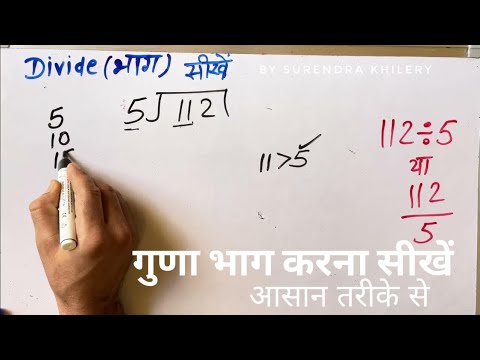 Divide (भाग) सीखें
BY SURENDRA KHILERY
5
10
15
5)112
11>5✓
112÷5
या
112
5
गुणा भाग करना सीखें
आसान तरीके से